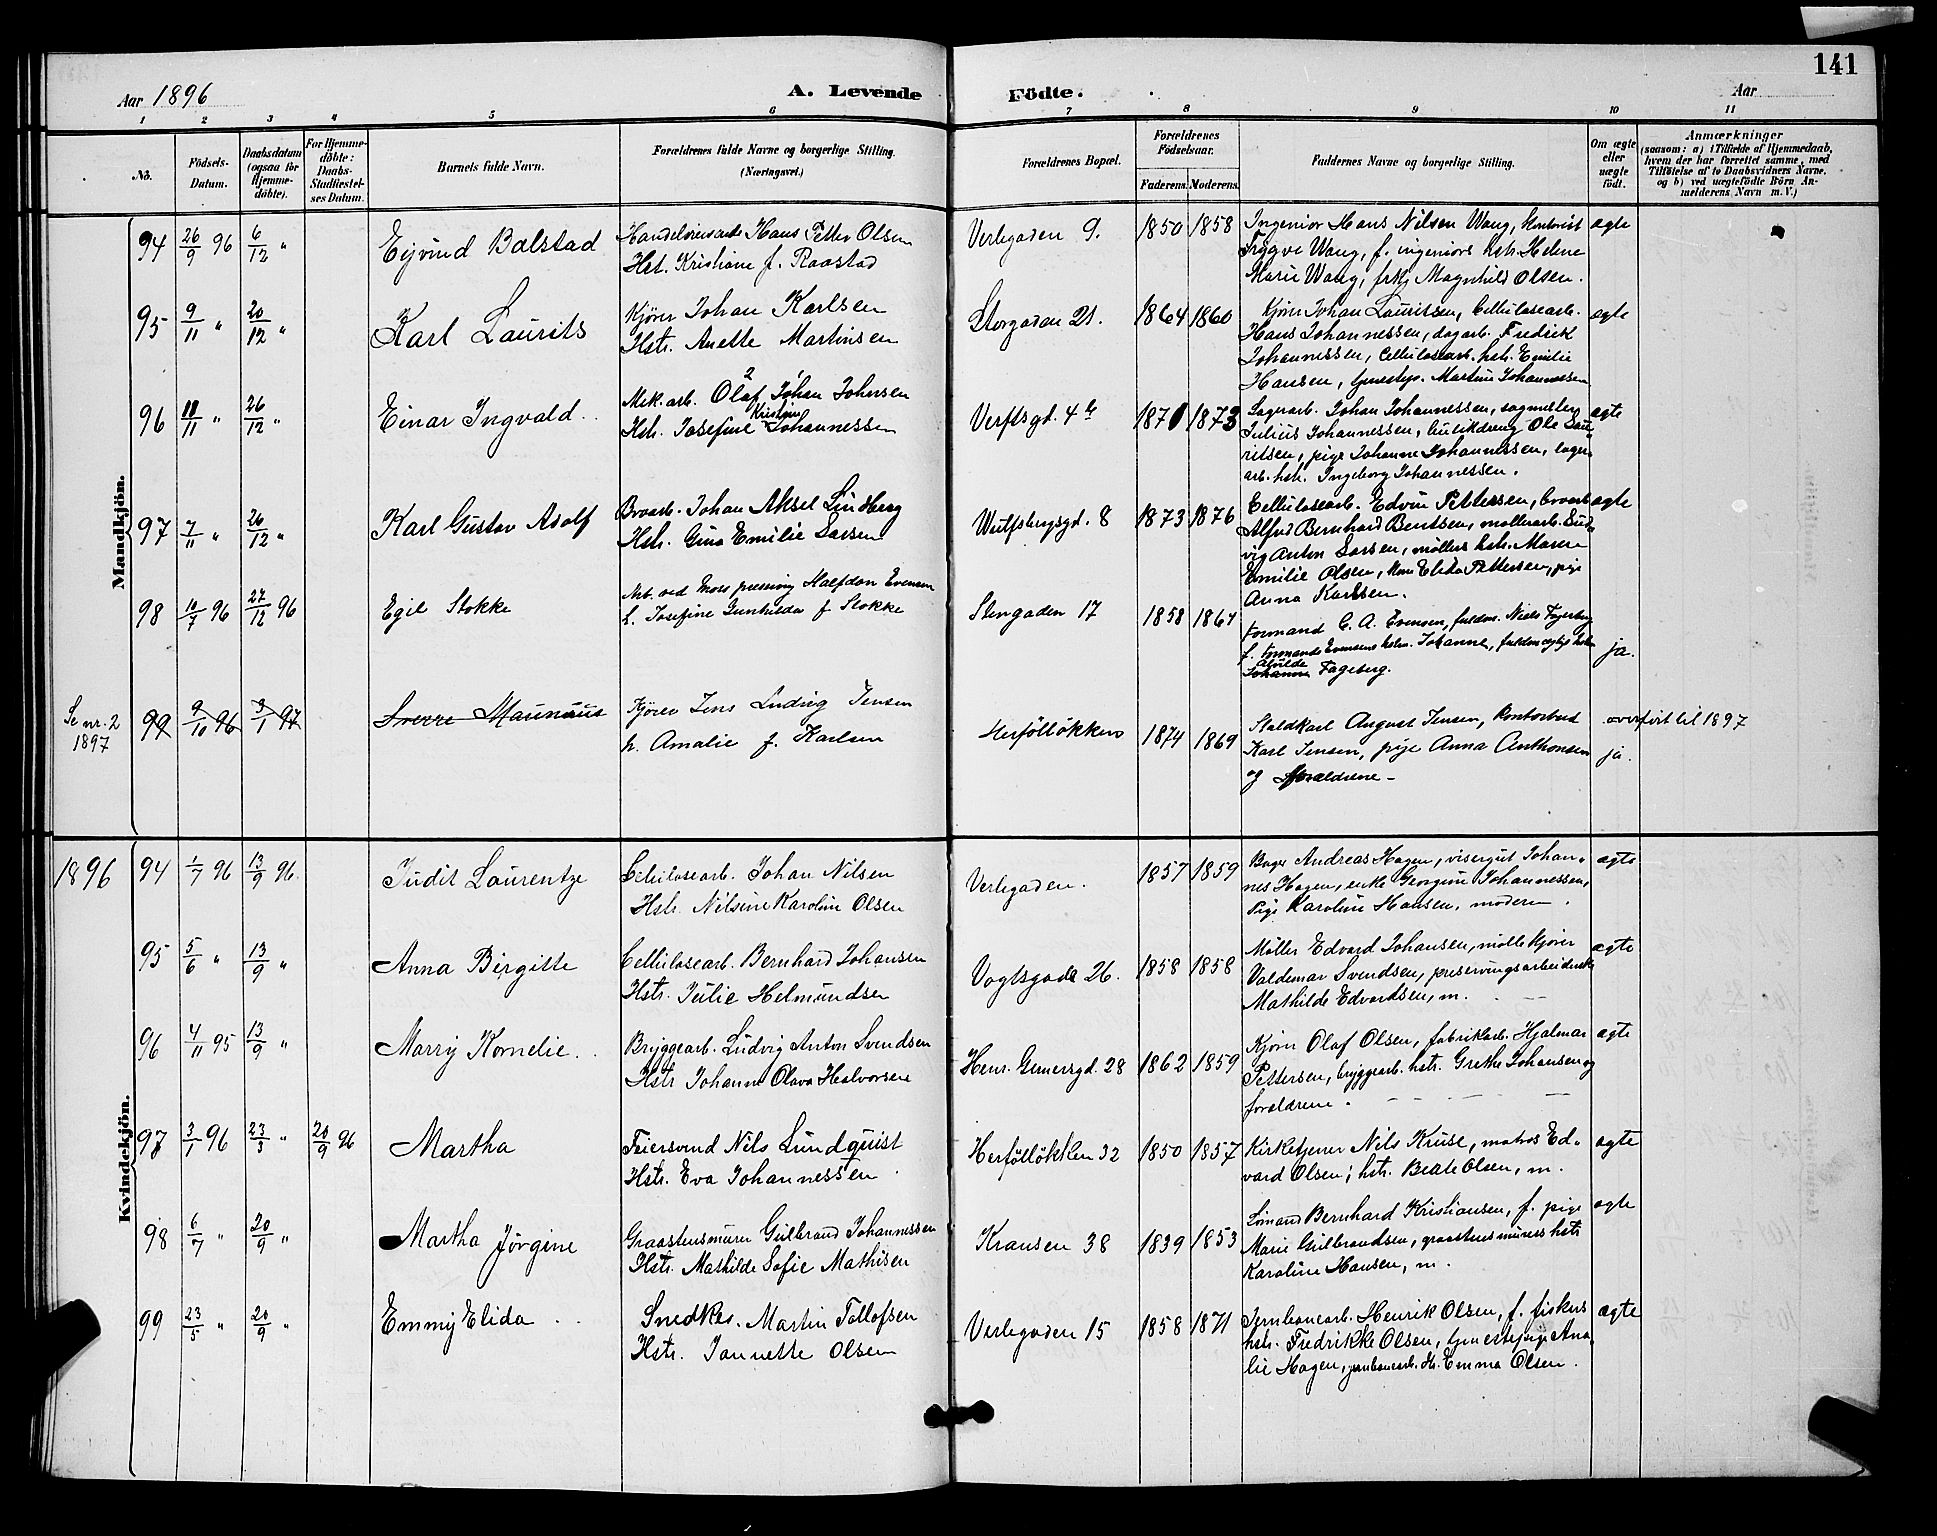 141
Aar 1896 A. Levende Födte. Aar
1 2 3 4 5 6 7 8 9 10 11
No.
Födsels-
Datum.
Daabsdatum
(ogsaa for
Hjemme-
döbte).
For Hjemme-
döbte:
Daabs-
Stadfæstel-
ses Datum.
Barnets fulde Navn.
Forældrenes fulde Navne og borgerlige Stilling.
(Næringsvei.)
Forældrenes Bopæl.
Forældrenes
Födselsaar.
Faderens. Moderens.
Faddernes Navne og borgerlige Stilling.
Om ægte
eller
uægte
födt.
Anmærkninger
(saasom: a) i Tilfælde af Hjemmedaab,
hvem der har forrettet samme, med
Tilföielse af to Daabsvidners Navne,
og b) ved uægtefödte Börn An-
melderens Navn m. V.)
Mandkjön.
94 26/9 96 6/12 " Ejvind Balstad
Hans Petter Olsen
Hst. Kristiane f. Raastad
Verlegaden 9. 1850 1858
Ingeniør Hans Nilsen Wang, kontorist
Trygve Wang, f. ingeniørs hstr. Helene
Marie Wang, frk. Magnhild Olsen.
ægte
95 9/11 " 20/12 " Karl Laurits
Kjörer Johan Karlsen
Hstr. Anette Martinsen
Storgaden 21. 1864 1860
Kjörer Johan Lauritsen, Cellulosearb.
Hans Johannessen, dagarb. Fredrick
Johannessen, Cellulosearb. hstr. Emilie
Hansen, tjenestep. Martine Johannessen
ægte
96 11/11 " 26/12 " Einar Ingvald
Mek. arb. Olaf 2 Johan 1 Johnsen
Hstr. Josefine Kristine Johannessen
Verftsgd. 4 b 1871 1873
Lagerarb. Johan Johannessen, sagmester
Julius Johannessen, butikdreng Ole Lau-
ritsen, pige Johanne Johannessen, lager-
arb. hstr. Ingeborg Johannessen.
ægte
97 7/11 " 26/12 " Karl Gustav Adolf
Broarb. Johan Aksel Lindberg
Hstr. Gina Emilie Larsen
Wulfsbergsgd. 8 1873 1876
Cellulosearb. Edvin Pettersen, broarb
Alfred Bernhard Bentsen, møllerarb. Lud-
vig Anton Larsen, møllers hstr. Maren
Emilie Olsen, Elida Pettersen, pige
Anna Karlsen.
ægte
98 10/7 96 27/12 96 Egil Stokke
Arb. ved Moss preserving Halfdan Evensen
h. Josefine Gunhilda f Stokke
Stengaden 17 1858 1867
Formand C. A. Evensen, fuldm. Niels Fageberg
f. formands Evensens hstr. Johanne, fuldmægtigs hstr.
Alvilde
Johanne Fageberg.
ja.
Se nr. 2
1897
99 9/10 96 3/1 97 Sverre Maunuus
Kjörer Jens Ludvig Jensen
h. Amalie f. Karlsen
Herföllökken 1874 1869
Staldkarl August Jensen, Kontorbud
Karl Jensen, pige Anna Anthonsen
og forældrene -
ja.
overfört til 1897
Kvindekjön.
1896 94 1/7 96 13/9 96. Judit Laurentze
Cellulosearb. Johan Nilsen
Hstr. Nilsine Karoline Olsen
Verlegaden. 1857 1859
Bager Andreas Hagen, visergut Johan-
nes Hagen, enke Georgine Johannessen,
Pige Karoline Hansen, moderen.
ægte
95 5/6 " 13/9 " Anna Birgitte
Cellulosearb. Bernhard Johansen
Hstr. Julie Helmundsen
Vogtsgade 26. 1858 1858
Møller Edvard Johansen, møllekjører
Valdemar Svendsen, preservingsarbeiderske
Mathilde Edvardsen, m.
ægte
96 4/11 95 13/9 " Marry Kornelie.
Bryggearb. Ludvig Anton Svendsen
Hstr Johanne Olava Halvorsen
Henr. Gernersgd. 28 1862 1859
Kjörer Olaf Olsen, fabrikarb. Hjalmar
Pettersen, bryggearb. hstr. Grethe Johansen og
forældrene.
ægte
97 3/1 96 23/3 " 20/9 96 Martha
Feiersvend Nils Lundquist
Hstr. Eva Johannessen
Herföllökken 32 1850 1857
Kirketjener Nils Kruse, matros Ed-
vard Olsen, hstr. Beate Olsen, m.
ægte
98 6/7 " 20/9 " Martha Jörgine
Graastensmurer Gulbrand Johannessen
Hstr. Mathilde Sofie Mathisen
Kransen 38 1839 1853
Sömand Bernhard Kristiansen, f. pige
Marie Gulbrandsen, graastensmurers hstr
Karoline Hansen, m.
ægte
99 23/5 " 20/9 " Emmy Elida
Snedker Martin Tollofsen
Hstr. Jannette Olsen
Verlegaden 15 1858 1871
Jernbanearb. Henrik Olsen, f. fiskers
hstr. Fredrikke Olsen, tjenestepige Ama-
lie Hagen, jernbanearb. H. Emma Olsen.
ægte